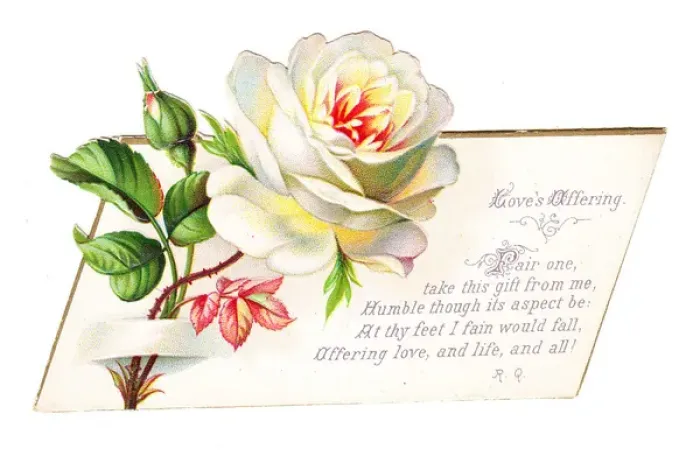 Love's Offering.
Fair one,
take this gift from me,
Humble though its aspect be:
At thy feet I fain would fall,
Offering love, and life, and all!
R. Q.